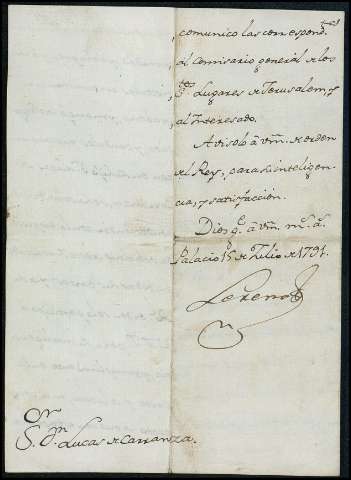 comunico las correspond.tes
al Comisario general de los
S.tos Lugares de Jerusalem, y
al Interesado.
Avisolo à vm. de orden
del Rey, para su inteligen-
cia, y satisfacción.
Dios g.e à vm. m.s a.s
Palacio 15 de Julio de 1791.
Lerena
S.or D.n Lucas de Carranza.